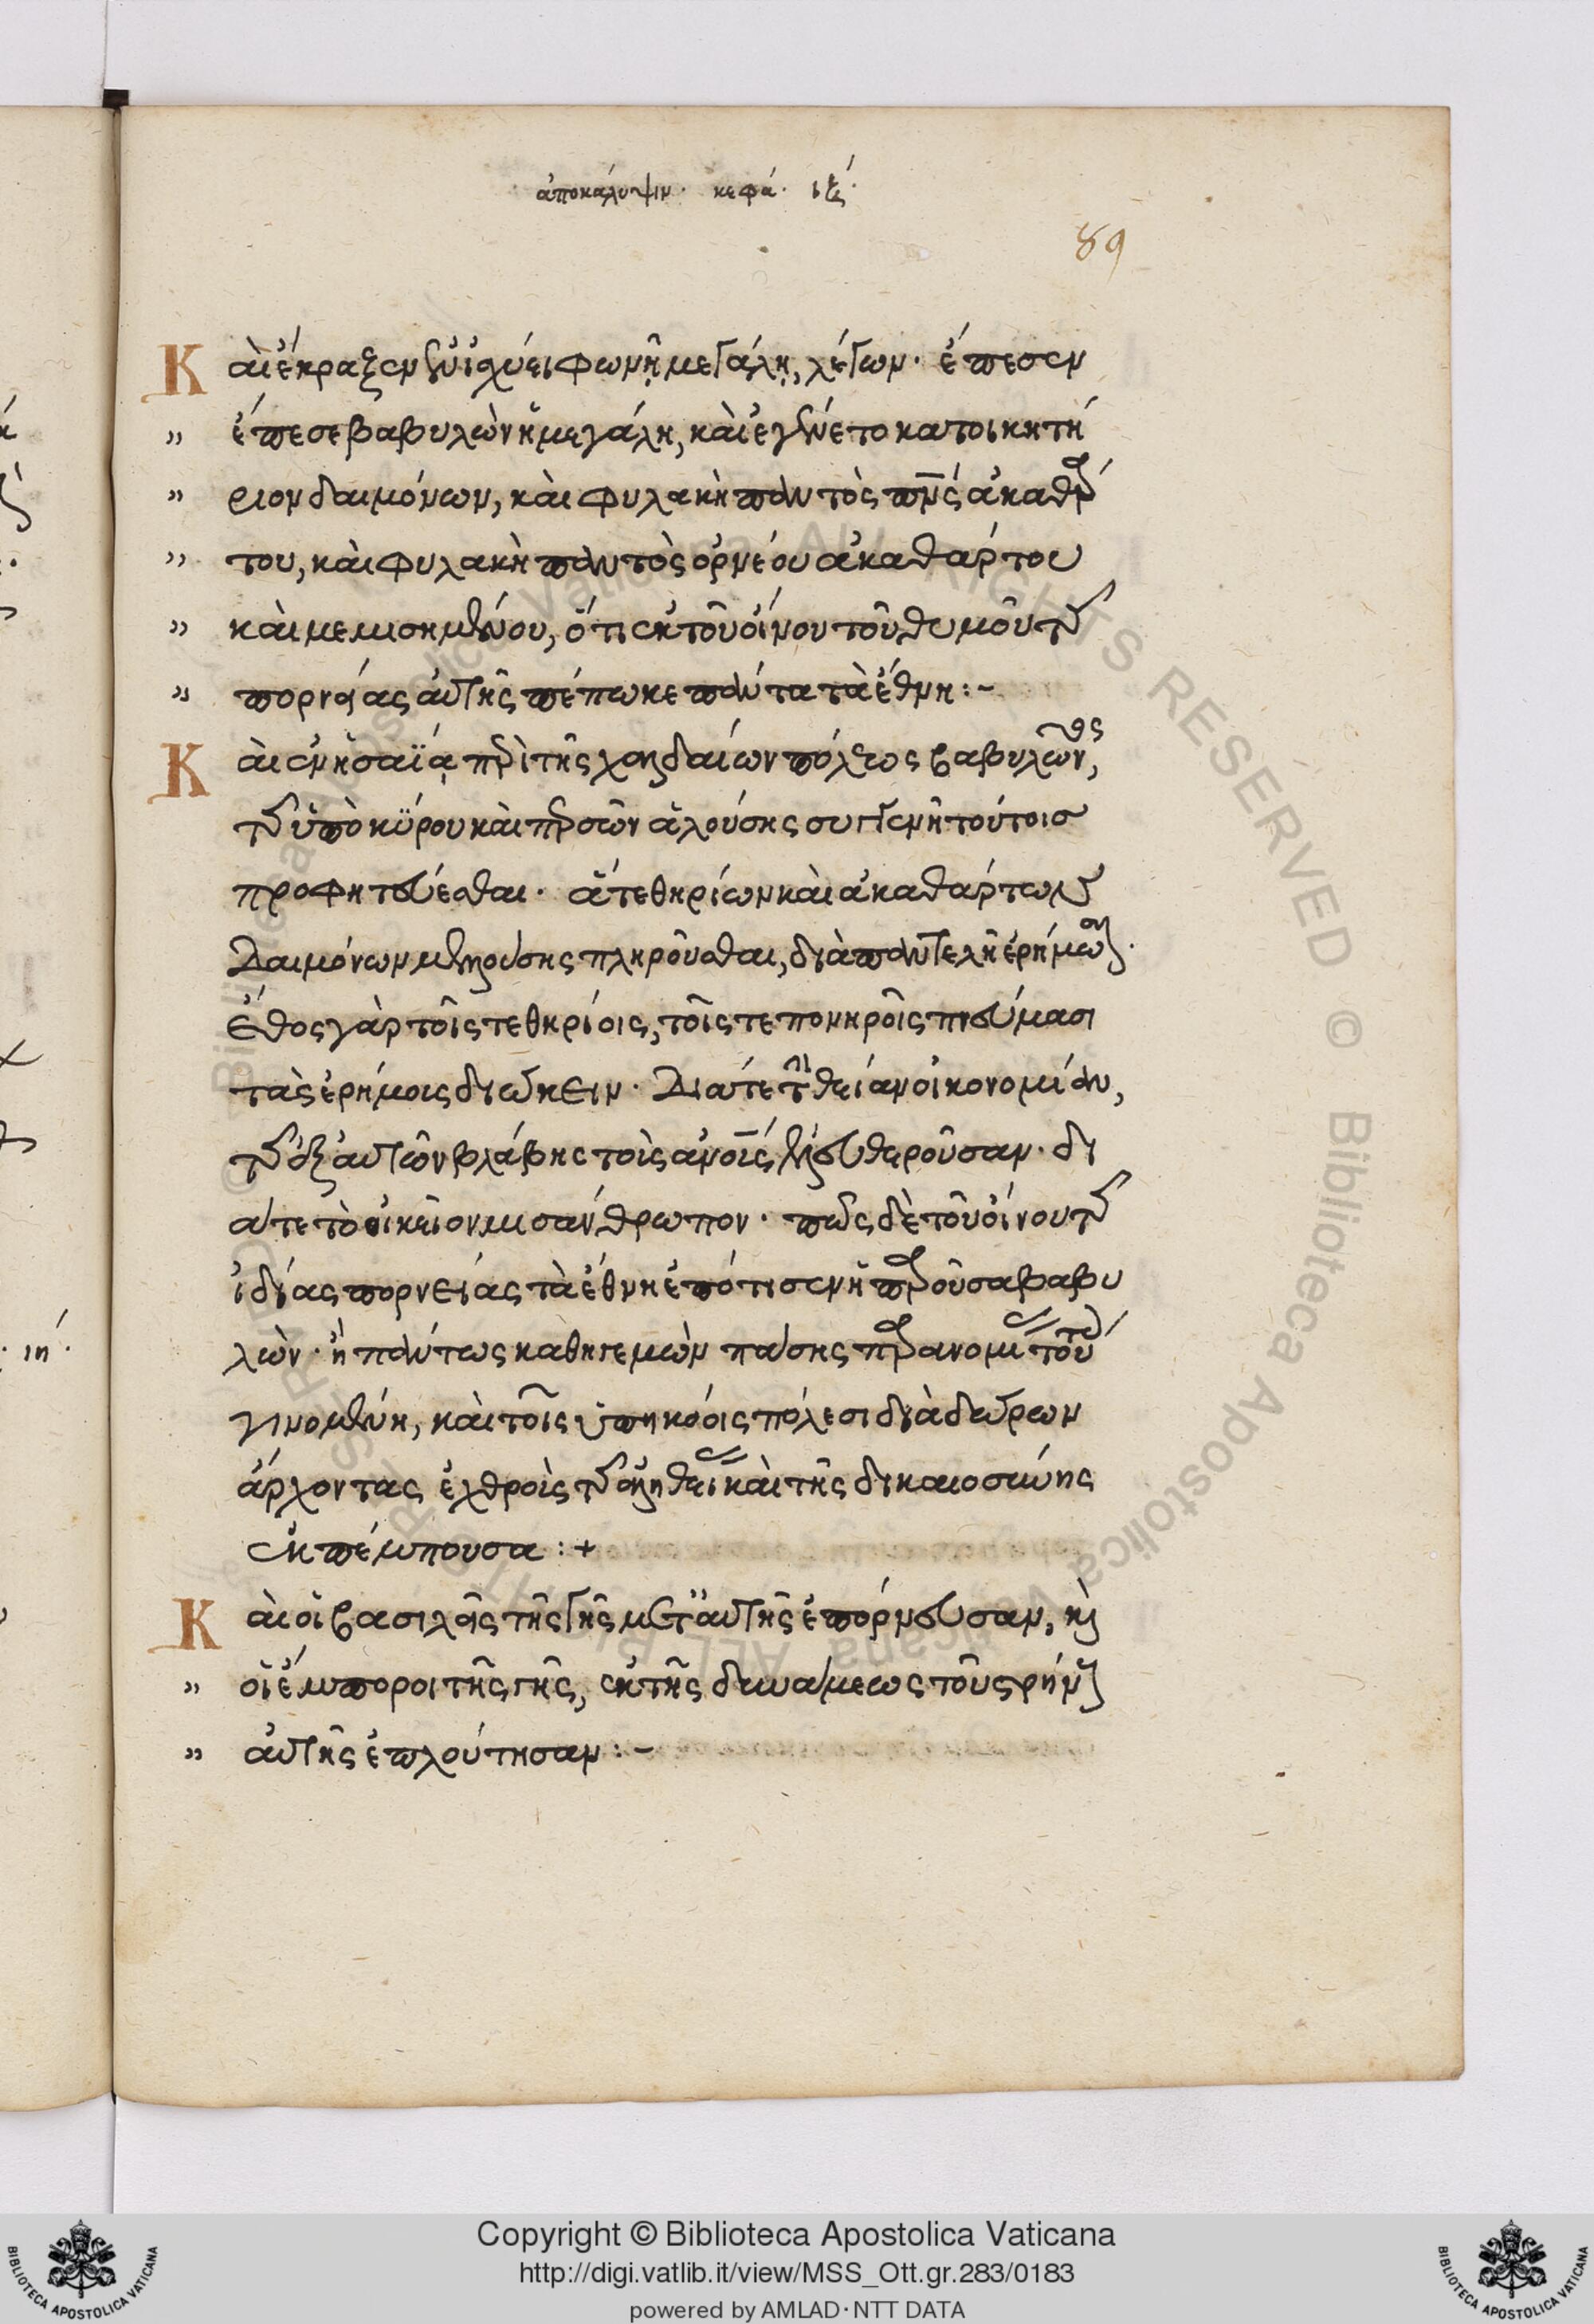 ἀποκάλυψιν· κεφά· ιζʹ·
89
Καὶ ἔκραξεν ἐν ἰσχύει φωνῇ μεγάλῃ, λέγων· ἔπεσεν
" ἔπεσε βαβυλὼν ἡ μεγάλη, καὶ ἐγένετο κατοικητή
" ριον δαιμόνων, καὶ φυλακὴ παντὸς πνς ἀκαθάρ
" του, καὶ φυλακὴ παντὸς ὀρνέου ἀκαθάρτου
" καὶ μεμισημένου, ὅτι ἐκ τοῦ οἴνου τοῦ θυμοῦ τῆς
" πορνείας αὐτῆς πέπωκε πάντα τὰ ἔθνη:-
Καὶ ἐν ἡσαΐᾳ περὶ τῆς χαλδαίων πόλεως βαβυλῶνος,
τῆς ὑπὸ κύρου καὶ περσῶν ἁλούσης συγγενῆ τούτοις
προφητεύεσθαι· ἅτε θηρίων καὶ ἀκαθάρτων
Δαιμόνων μελλούσης πληροῦσθαι, διὰ παντελῆ ἐρήμωσιν·
ἔθος γὰρ τοῖς τε θηρίοις, τοῖς τε πονηροῖς πνεύμασι
τὰς ἐρήμους διώκειν· Διά τε τὴν θείαν οἰκονομίαν,
τῆς ἐξ αὐτῶν βλάβης τοὺς ἀνους ἐλευθεροῦσαν· δι
ά τε τὸ οἰκεῖον μισάνθρωπον· πῶς δὲ τοῦ οἴνου τῆς
ἰδίας πορνείας τὰ ἔθνη ἐπότισεν ἡ παροῦσα βαβυ
λών· ἢ πάντως καθηγεμὼν πάσης παρανομίας τούτων
γινομένη, καὶ τοῖς ὑπηκόοις πόλεσι διὰ δώρων
ἄρχοντας ἐχθροὺς τῆς ἀληθείας καὶ τῆς δικαιοσύνης
ἐκπέμπουσα:+
Καὶ οἱ βασιλεῖς τῆς γῆς μετ' αὐτῆς ἐπόρνευσαν, καὶ
" οἱ ἔμποροι τῆς γῆς, ἐκ τῆς δυνάμεως τοῦ στρήνους
" αὐτῆς ἐπλούτησαν:-
Copyright © Biblioteca Apostolica Vaticana
http://digi.vatlib.it/view/MSS_Ott.gr.283/0183
powered by AMLAD·NTT DATA